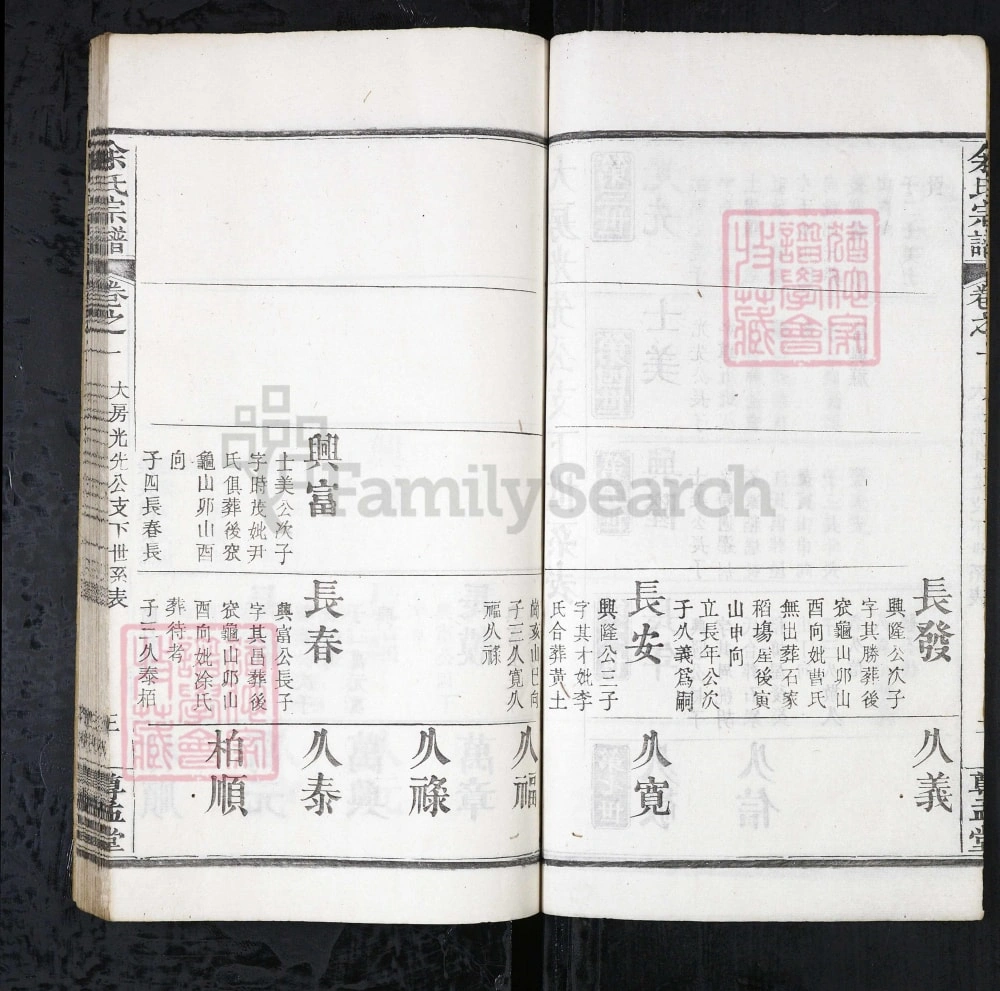 余氏宗譜
卷之一
長發
興隆公次子
字其勝葬後
窽龜山卯山
酉向妣曹氏
無出葬石家
稻塲屋後寅
山申向
立長年公次
子久義爲嗣
久義
長安
興隆公三子
字其才妣李
氏合葬黃土
亥山巳向
子三久寛久
福久祿
久寛
久福
久祿
興富
士美公次子
字時茂妣尹
氏俱葬後窽
龜山卯山酉
向
子四長春長
長春
興富公長子
字其昌葬後
窽龜山卯山
酉向妣涂氏
葬待考
子三久泰栢
久泰
柏順
余氏宗譜
卷之一
大房光先公支下世系表
尊孟堂
FamilySearch